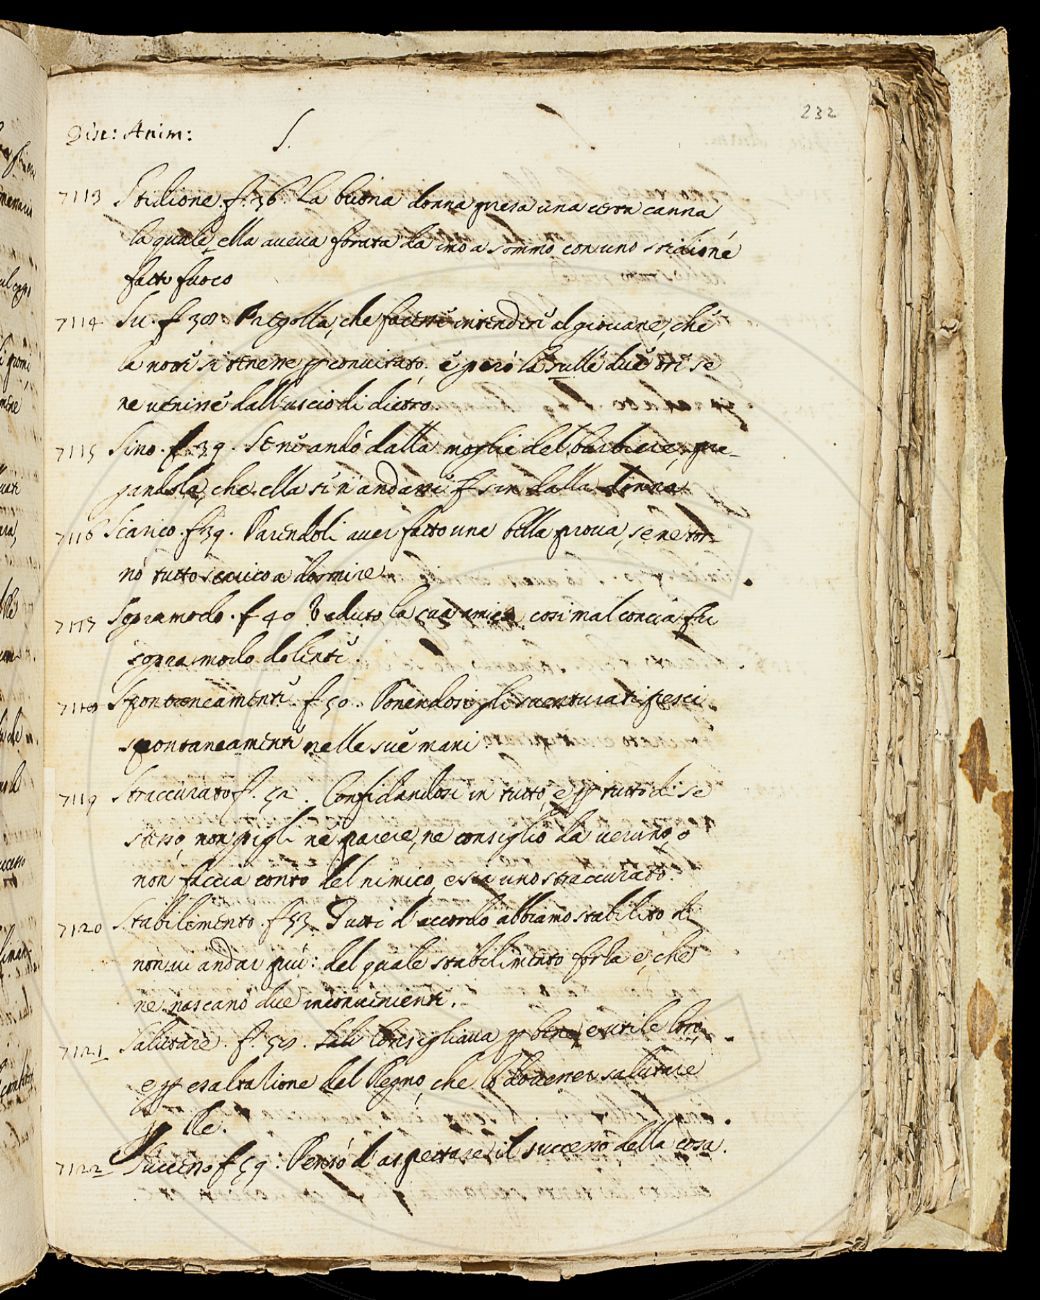 232
Disc: Anim:
S.
7113 Stidione f. 36. La buona donna presa una certa canna
la quale ella aveua forata da imo a sommo con uno stidione
fatto fuoco
7114 Su. f. 38. Pregolla, che facesse intendere al giovane, che
la notte si tenesse p convitato. e però la sulle due ore se
ne venisse dall'uscio di dietro.
7115 Sino. f. 39. Se ne andò dalla moglie del barbiere, pre-
gandola, che ella se n'andasse f sin dalla donna
7116 Scarico. f. 39. Parendoli aver fatto una bella prova, se ne tor-
nò tutto scarico a dormire
7117 Sopramodo. f. 40 Veduto la sua amica così mal concia fu
sopra modo dolente.
7118 Spontaneamente f. 50. Ponendosi gli suenturati pesci
spontaneamente nelle sue mani
7119 Straccurato f. 52. Confidandosi in tutto, e p tutto di se
stesso, non pigli ne parere, ne consiglio da veruno, o
non faccia conto del nimico, e sia uno straccurato.
7120 Stabilimento. f. 53. Tutti d'accordo abbiamo stabilito di
non vi andar più: del quale stabilimento forza e, che
ne nascano due inconvenienti.
7121 Salutare. f. 58. consigliava p bene, e utile loro,
e p esaltazione del Regno, che lo dovesser salutare
Re.
7122 Successo f. 59. Pensò d'aspettare il successo della cosa.